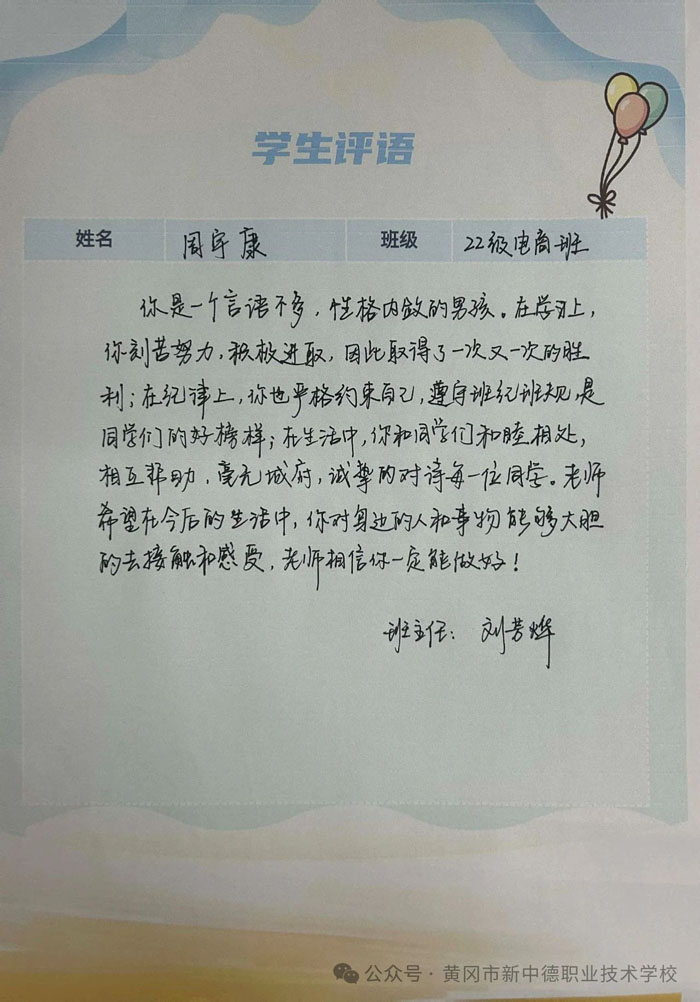 学生评语
姓名 周宇康 班级 22级电商班
你是一个言语不多，性格内敛的男孩。在学习上，
你刻苦努力，积极进取，因此取得了一次又一次的胜
利；在纪律上，你也严格约束自己，遵守班纪班规，是
同学们的好榜样；在生活中，你和同学们和睦相处，
相互帮助，毫无城府，诚挚的对待每一位同学。老师
希望在今后的生活中，你对身边的人和事物能够大胆
的去接触和感受，老师相信你一定能做好！
班主任：刘芳烨
公众号·黄冈市新中德职业技术学校